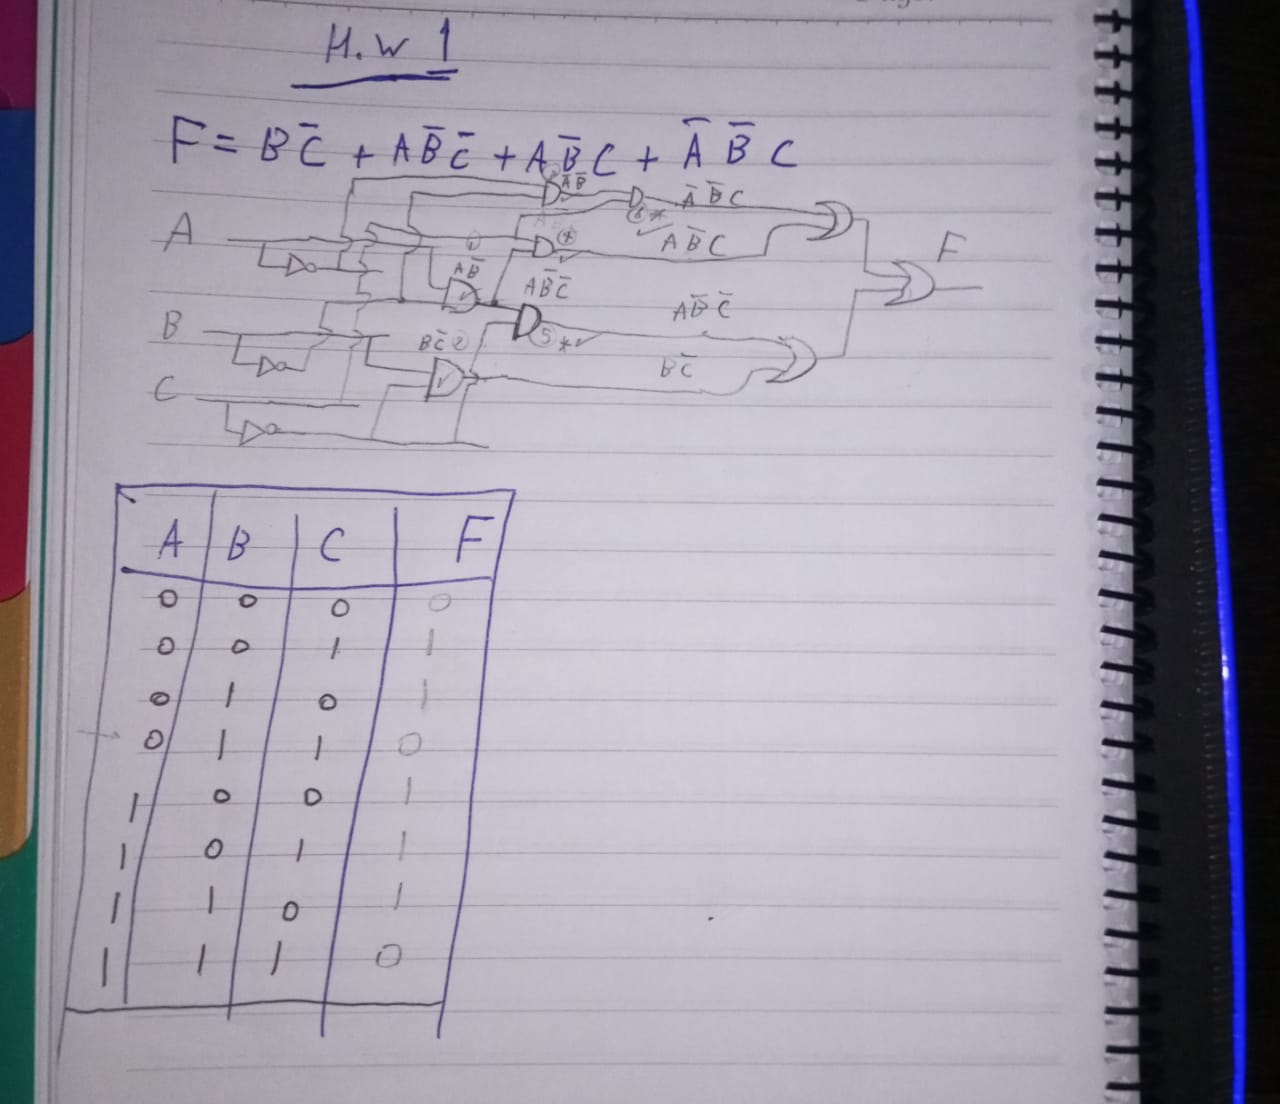 H.W 1
F = BC̅ + AB̅C̅ + AB̅C + A̅ B̅ C
A̅B̅
A̅ B̅ C
A
④
⑥*
AB̅C
F
①
AB̅
AB̅C̅
AB̅C̅
B
BC̅ ②
⑤*
BC̅
C
A B C F
0 0 0 0
0 0 1 1
0 1 0 1
0 1 1 0
1 0 0 1
1 0 1 1
1 1 0 1
1 1 1 0